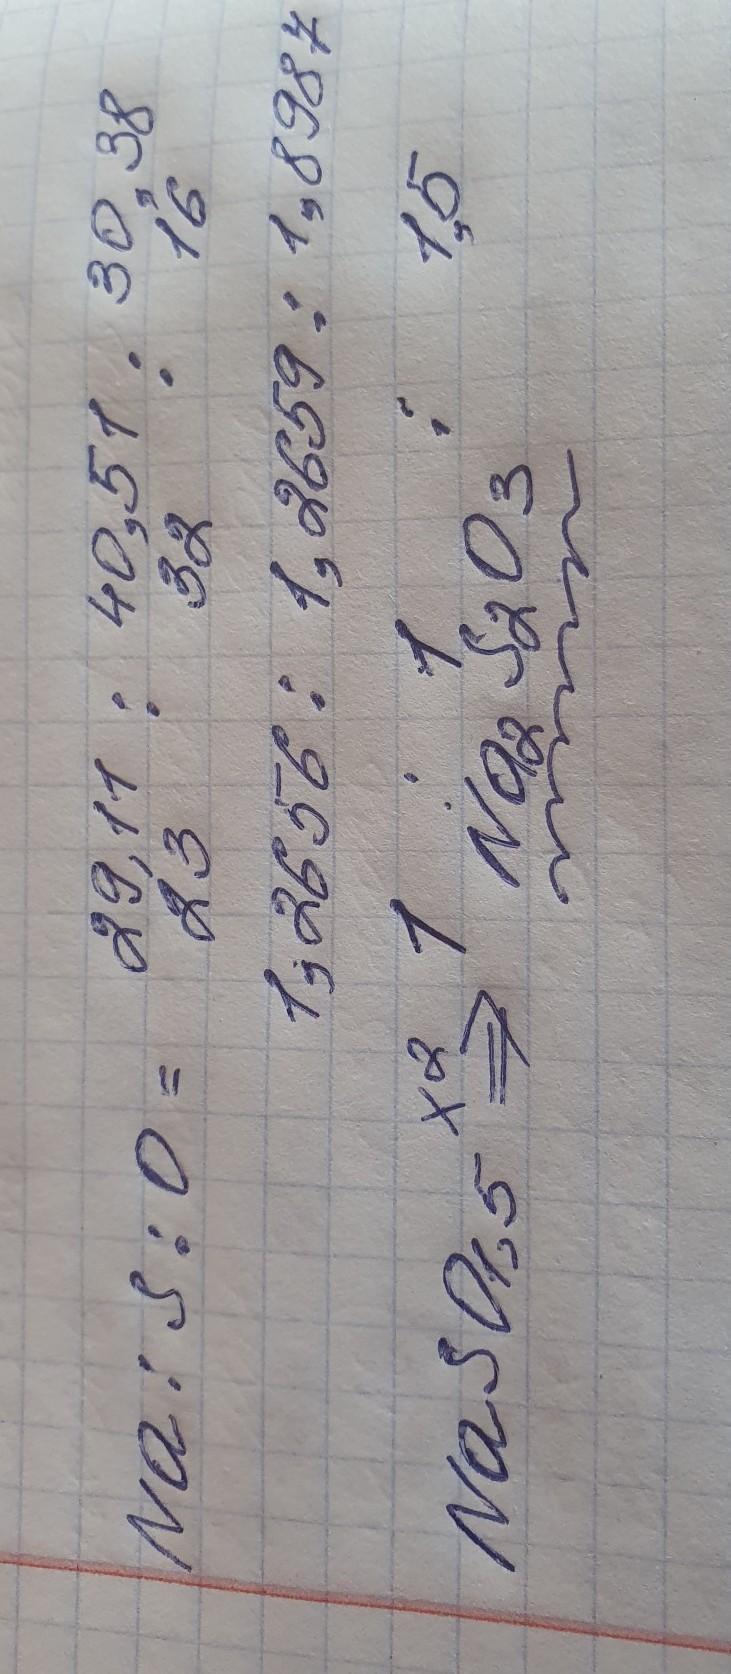 Na : S : O = 29,11 : 40,51 : 30,38
23 32 : 16
1,2656 : 1,2659 : 1,8987
1 : 1 : 1,5
NaSO1,5 x2 ⇒ Na2S2O3